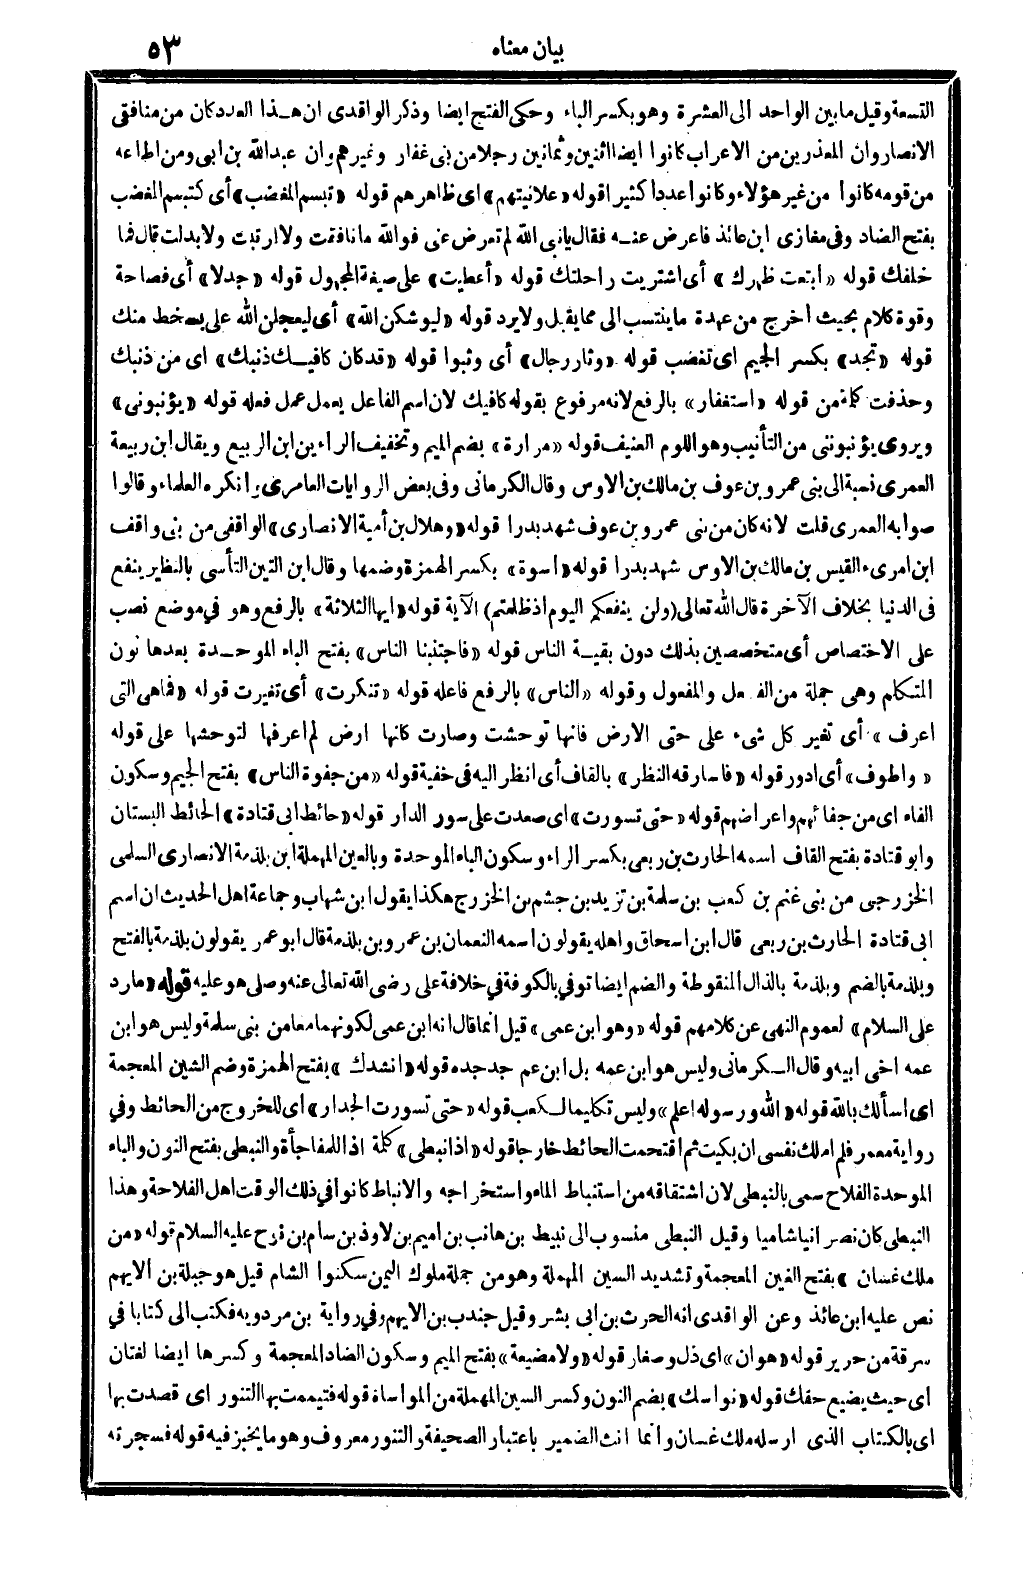 بيان معناه ٥٣
التسعة وقيل ما بين الواحد الى العشرة وهو بكسر الباء وحكى الفتح ايضا وذكر الواقدى ان هذا العدد كان من منافقى
الانصار وان المعذرين من الاعراب كانوا ايضا اثنين وثمانين رجلا من بنى غفار وغيرهم وان عبد الله بن ابى ومن اطاعه
من قومه كانوا من غير هؤلاء وكانوا عددا كثيرا قوله «علانيتهم» اى ظاهرهم قوله «تبسم المغضب» أى كتبسم المغضب
بفتح الضاد وفى مغازى ابن عائذ فاعرض عنه فقال يانبى الله لم تعرض عنى فوالله ما نافقت ولا ارتبت ولا بدلت قال فما
خلفك قوله «ابتعت ظهرك» أى اشتريت راحلتك قوله «أعطيت» على صيغة المجهول قوله «جدلا» أى فصاحة
وقوة كلام بحيث أخرج من عهدة ما ينتسب الى مما يقبل ولا يرد قوله «ليوشكن الله» أى ليعجلن الله على بسخط منك
قوله «تجد» بكسر الجيم اى تغضب قوله «وثار رجال» أى وثبوا قوله «قد كان كافيك ذنبك» اى من ذنبك
وحذفت كلمة من قوله «استغفار» بالرفع لانه مرفوع بقوله كافيك لان اسم الفاعل يعمل عمل فعله قوله «يؤنبونى»
ويروى يؤنبوننى من التأنيب وهو اللوم العنيف قوله «مرارة» بضم الميم وتخفيف الراءين ابن الربيع ويقال ابن ربيعة
العمرى نسبة الى بنى عمرو بن عوف بن مالك بن الاوس وقال الكرمانى وفى بعض الروايات العامرى وانكره العلماء وقالوا
صوابه العمرى قلت لانه كان من بنى عمرو بن عوف شهد بدرا قوله «وهلال بن أمية الانصارى» الواقفى من بنى واقف
ابن امرىء القيس بن مالك بن الاوس شهد بدرا قوله «اسوة» بكسر الهمزة وضمها وقال ابن التين التأسى بالنظير ينفع
فى الدنيا بخلاف الآخرة قال الله تعالى (ولن ينفعكم اليوم اذ ظلمتم) الآية قوله «ايها الثلاثة» بالرفع وهو فى موضع نصب
على الاختصاص أى متخصصين بذلك دون بقية الناس قوله «فاجتنبنا الناس» بفتح الباء الموحدة بعدها نون
المتكلم وهى جملة من الفعل والمفعول وقوله «الناس» بالرفع فاعله قوله «تنكرت» أى تغيرت قوله «فماهى التى
اعرف» أى تغير كل شىء على حتى الارض فانها توحشت وصارت كانها ارض لم اعرفها لتوحشها على قوله
«واطوف» أى ادور قوله «فاسارقه النظر» بالقاف أى انظر اليه فى خفية قوله «من جفوة الناس» بفتح الجيم وسكون
الفاء اى من جفائهم واعراضهم قوله «حتى تسورت» اى صعدت على سور الدار قوله «حائط ابى قتادة» الحائط البستان
وابو قتادة بفتح القاف اسمه الحارث بن ربعى بكسر الراء وسكون الباء الموحدة وبالعين المهملة ابن بلذمة الانصارى السلمى
الخزرجى من بنى غنم بن كعب بن سلمة بن تزيد بن جشم بن الخزرج هكذا يقول ابن شهاب وجماعة اهل الحديث ان اسم
ابى قتادة الحارث بن ربعى قال ابن اسحاق واهله يقولون اسمه النعمان بن عمرو بن بلذمة قال ابو عمر يقولون بلذمة بالفتح
وبلذمة بالضم وبلذمة بالذال المنقوطة والضم ايضا توفي بالكوفة في خلافة على رضى الله تعالى عنه وصلى هو عليه قوله «مارد
على السلام» لعموم النهى عن كلامهم قوله «وهو ابن عمى» قيل انما قال انه ابن عمى لكونهما معا من بنى سلمة وليس هو ابن
عمه اخى ابيه وقال الكرمانى وليس هو ابن عمه بل ابن عم جد جده قوله «انشدك» بفتح الهمزة وضم الشين المعجمة
اى اسألك بالله قوله «الله ورسوله اعلم» وليس تكليما لكعب قوله «حتى تسورت الجدار» اى للخروج من الحائط وفي
رواية معمر فلم املك نفسى ان بكيت ثم اقتحمت الحائط خارجا قوله «اذا نبطى» كلمة اذا للمفاجأة والنبطى بفتح النون والباء
الموحدة الفلاح سمى بالنبطى لان اشتقاقه من استنباط الماء واستخراجه والانباط كانوا في ذلك الوقت اهل الفلاحة وهذا
النبطى كان نصرانيا شاميا وقيل النبطى منسوب الى نبيط بن هانب بن اميم بن لاوذ بن سام بن نوح عليه السلام قوله «من
ملك غسان» بفتح الغين المعجمة وتشديد السين المهملة وهو من جملة ملوك اليمن سكنوا الشام قيل هو جبلة بن الايهم
نص عليه ابن عائذ وعن الواقدى انه الحرث بن ابى بشر وقيل جندب بن الايهم وفي رواية بن مردويه فكتب الى كتابا في
سرقة من حرير قوله «هوان» اى ذل وصغار قوله «ولا مضيعة» بفتح الميم وسكون الضاد المعجمة وكسرها ايضا لغتان
اى حيث يضيع حقك قوله «نواسك» بضم النون وكسر السين المهملة من المواساة قوله فتيممت بها التنور اى قصدت بها
اى بالكتاب الذى ارسله ملك غسان وانما انث الضمير باعتبار الصحيفة والتنور معروف وهو ما يخبز فيه قوله فسجرته